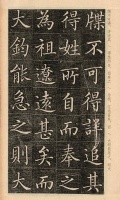 牒不可得詳追其
得姓所自而奉之
為祖遼遠甚矣而
大鈞能急之則大